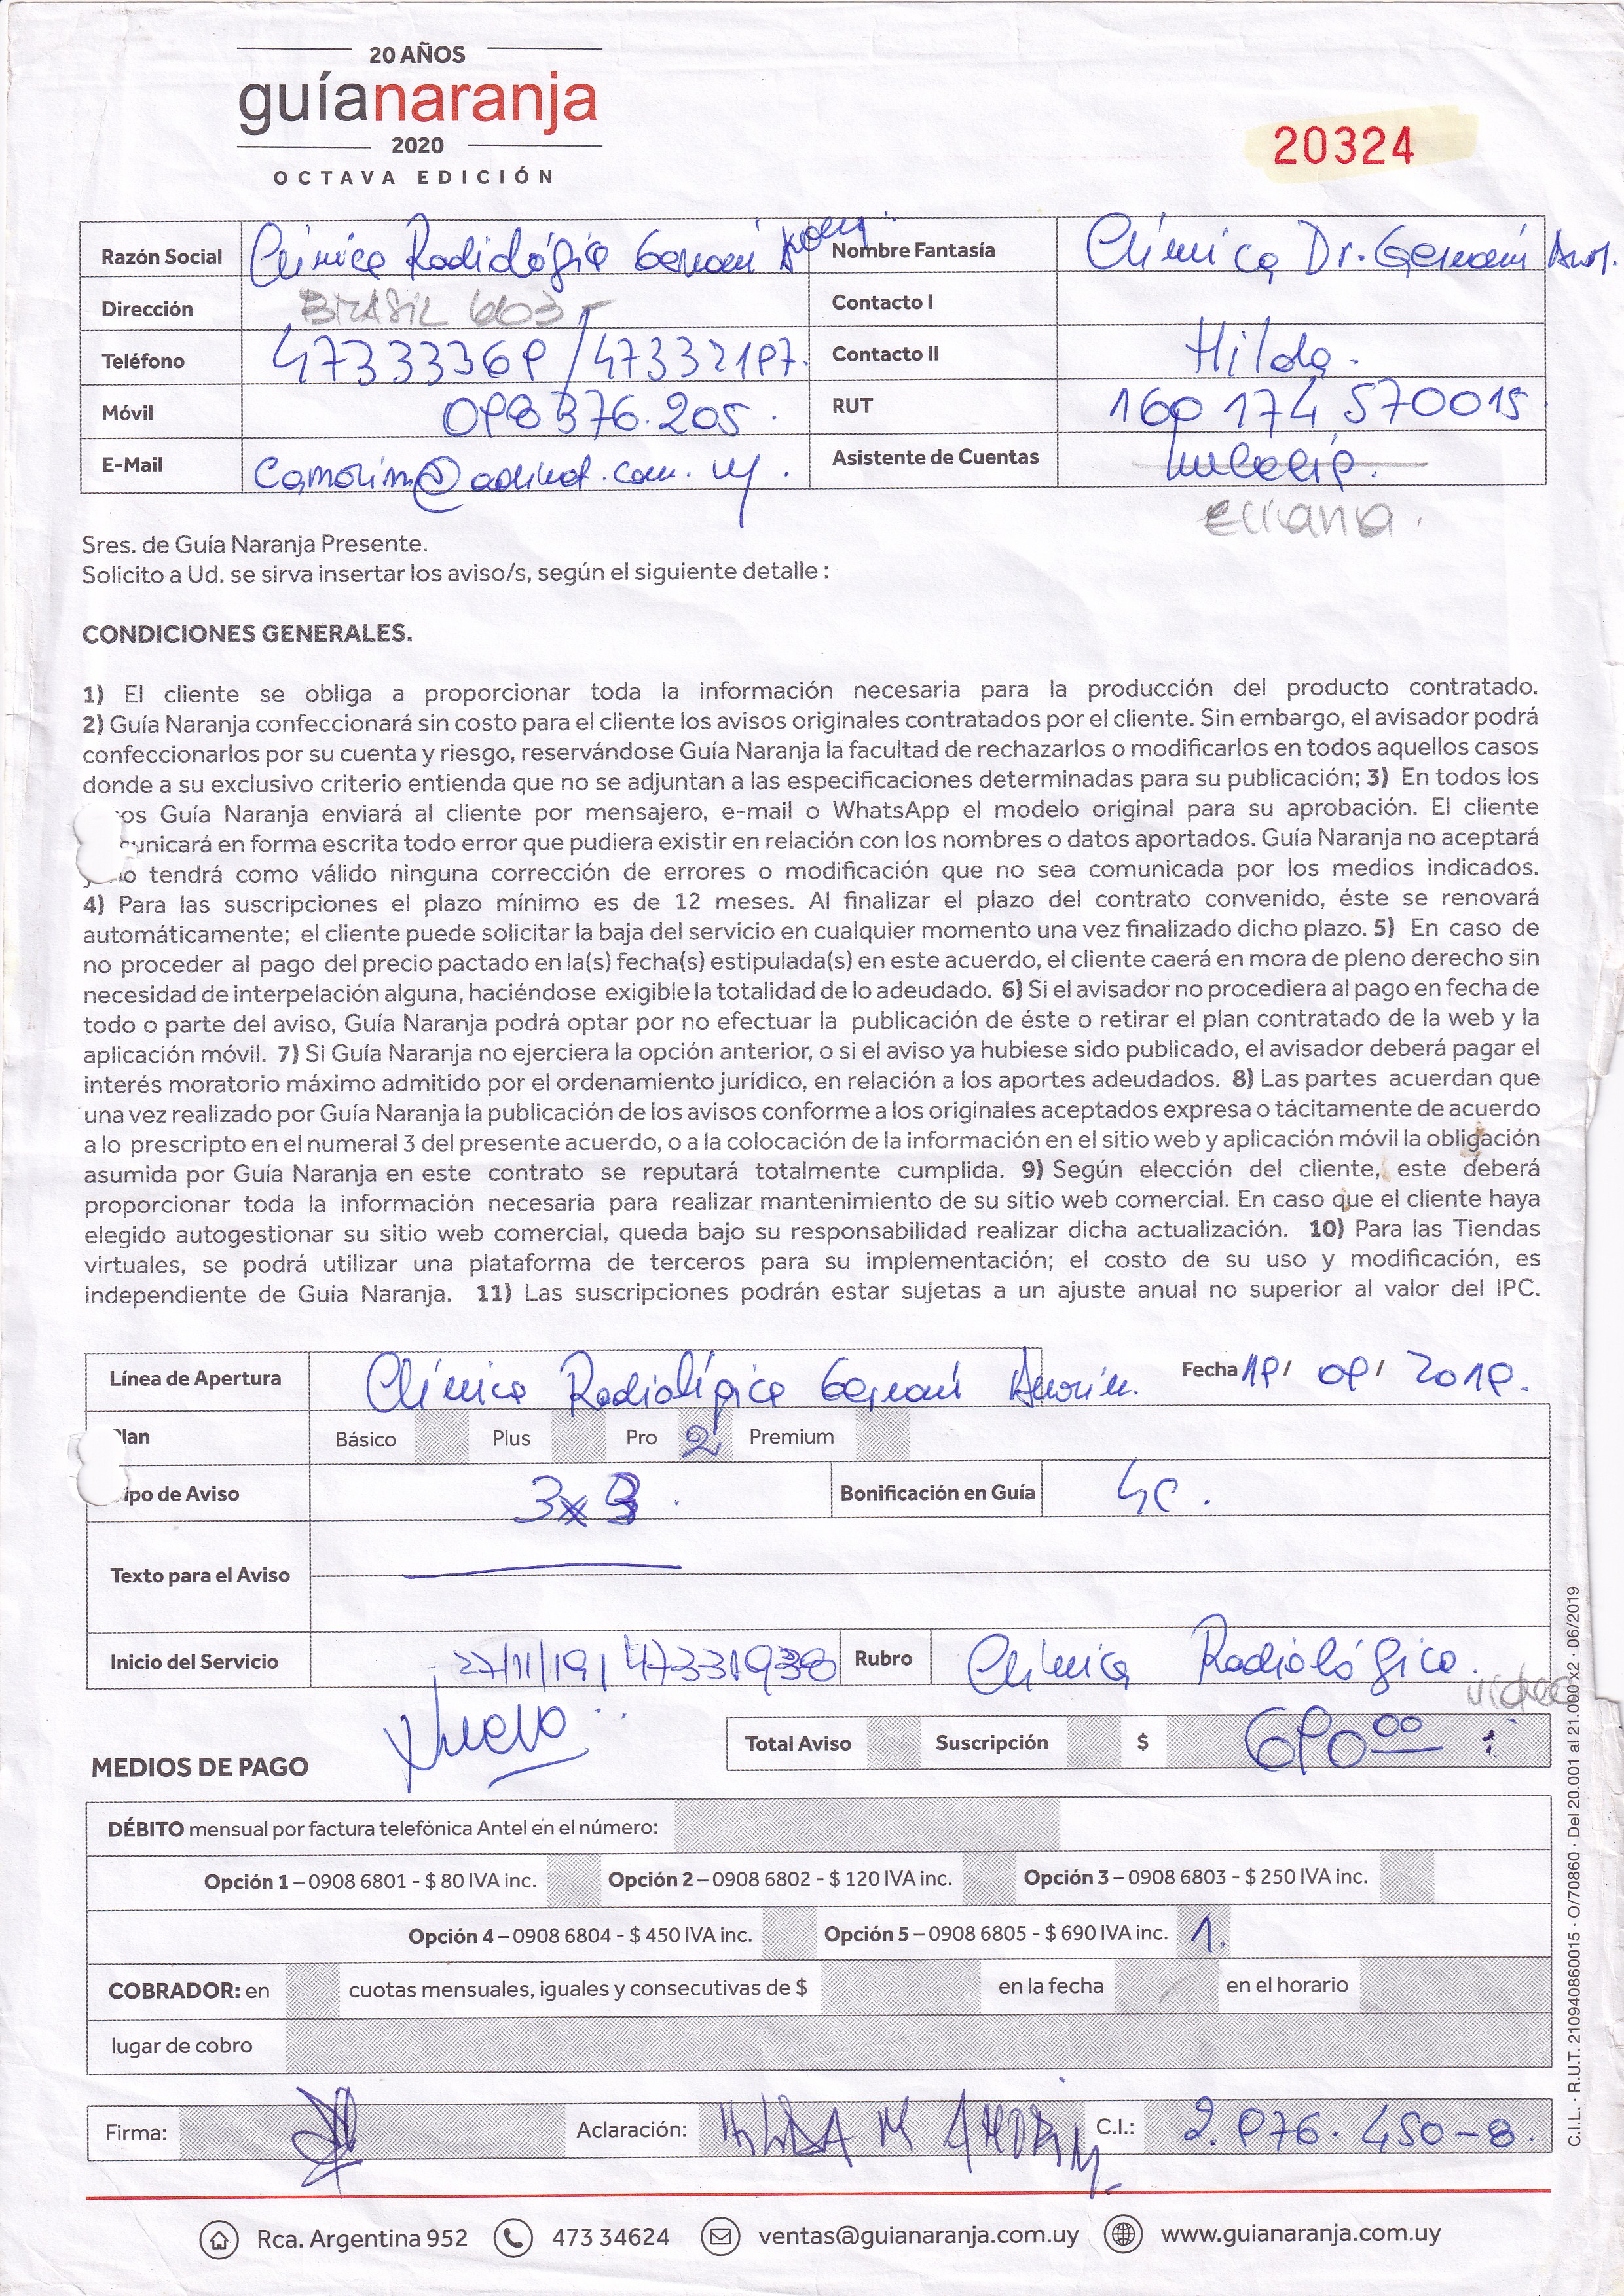 20 AÑOS
guíanaranja
2020
OCTAVA EDICIÓN
20324
Razón Social Clínica Radiológica Germani Amorim Nombre Fantasía Clínica Dr. Germani Amor.
Dirección BRASIL 603 Contacto I
Teléfono 47333369 / 47332197. Contacto II Hilda.
Móvil 098 376.205. RUT 160 174 570015
E-Mail Camorim@adinet.com.uy. Asistente de Cuentas
Sres. de Guía Naranja Presente.
Solicito a Ud. se sirva insertar los aviso/s, según el siguiente detalle :
CONDICIONES GENERALES.
1) El cliente se obliga a proporcionar toda la información necesaria para la producción del producto contratado.
2) Guía Naranja confeccionará sin costo para el cliente los avisos originales contratados por el cliente. Sin embargo, el avisador podrá
confeccionarlos por su cuenta y riesgo, reservándose Guía Naranja la facultad de rechazarlos o modificarlos en todos aquellos casos
donde a su exclusivo criterio entienda que no se adjuntan a las especificaciones determinadas para su publicación; 3) En todos los
os Guía Naranja enviará al cliente por mensajero, e-mail o WhatsApp el modelo original para su aprobación. El cliente
unicará en forma escrita todo error que pudiera existir en relación con los nombres o datos aportados. Guía Naranja no aceptará
no tendrá como válido ninguna corrección de errores o modificación que no sea comunicada por los medios indicados.
4) Para las suscripciones el plazo mínimo es de 12 meses. Al finalizar el plazo del contrato convenido, éste se renovará
automáticamente; el cliente puede solicitar la baja del servicio en cualquier momento una vez finalizado dicho plazo. 5) En caso de
no proceder al pago del precio pactado en la(s) fecha(s) estipulada(s) en este acuerdo, el cliente caerá en mora de pleno derecho sin
necesidad de interpelación alguna, haciéndose exigible la totalidad de lo adeudado. 6) Si el avisador no procediera al pago en fecha de
todo o parte del aviso, Guía Naranja podrá optar por no efectuar la publicación de éste o retirar el plan contratado de la web y la
aplicación móvil. 7) Si Guía Naranja no ejerciera la opción anterior, o si el aviso ya hubiese sido publicado, el avisador deberá pagar el
interés moratorio máximo admitido por el ordenamiento jurídico, en relación a los aportes adeudados. 8) Las partes acuerdan que
una vez realizado por Guía Naranja la publicación de los avisos conforme a los originales aceptados expresa o tácitamente de acuerdo
a lo prescripto en el numeral 3 del presente acuerdo, o a la colocación de la información en el sitio web y aplicación móvil la obligación
asumida por Guía Naranja en este contrato se reputará totalmente cumplida. 9) Según elección del cliente, este deberá
proporcionar toda la información necesaria para realizar mantenimiento de su sitio web comercial. En caso que el cliente haya
elegido autogestionar su sitio web comercial, queda bajo su responsabilidad realizar dicha actualización. 10) Para las Tiendas
virtuales, se podrá utilizar una plataforma de terceros para su implementación; el costo de su uso y modificación, es
independiente de Guía Naranja. 11) Las suscripciones podrán estar sujetas a un ajuste anual no superior al valor del IPC.
Línea de Apertura Clínica Radiológica Germani Amorim. Fecha 19/ 09/ 2019.
Plan Básico Plus Pro 2 Premium
ipo de Aviso 3x3. Bonificación en Guía 4C.
Texto para el Aviso
Inicio del Servicio 27/11/19 | 47331938 Rubro Clínica Radiológica.
video
Nuevo Total Aviso Suscripción $ 690 00
MEDIOS DE PAGO
DÉBITO mensual por factura telefónica Antel en el número:
Opción 1 – 0908 6801 - $ 80 IVA inc. Opción 2 – 0908 6802 - $ 120 IVA inc. Opción 3 – 0908 6803 - $ 250 IVA inc.
Opción 4 – 0908 6804 - $ 450 IVA inc. Opción 5 – 0908 6805 - $ 690 IVA inc. 1.
COBRADOR: en cuotas mensuales, iguales y consecutivas de $ en la fecha en el horario
lugar de cobro
Firma: Aclaración: HILDA M AMORIM C.I.: 2.976.450-8.
Rca. Argentina 952 473 34624 ventas@guianaranja.com.uy www.guianaranja.com.uy
C.I.L. · R.U.T. 210940860015 · O/70860 · Del 20.001 al 21.000 x2 · 06/2019